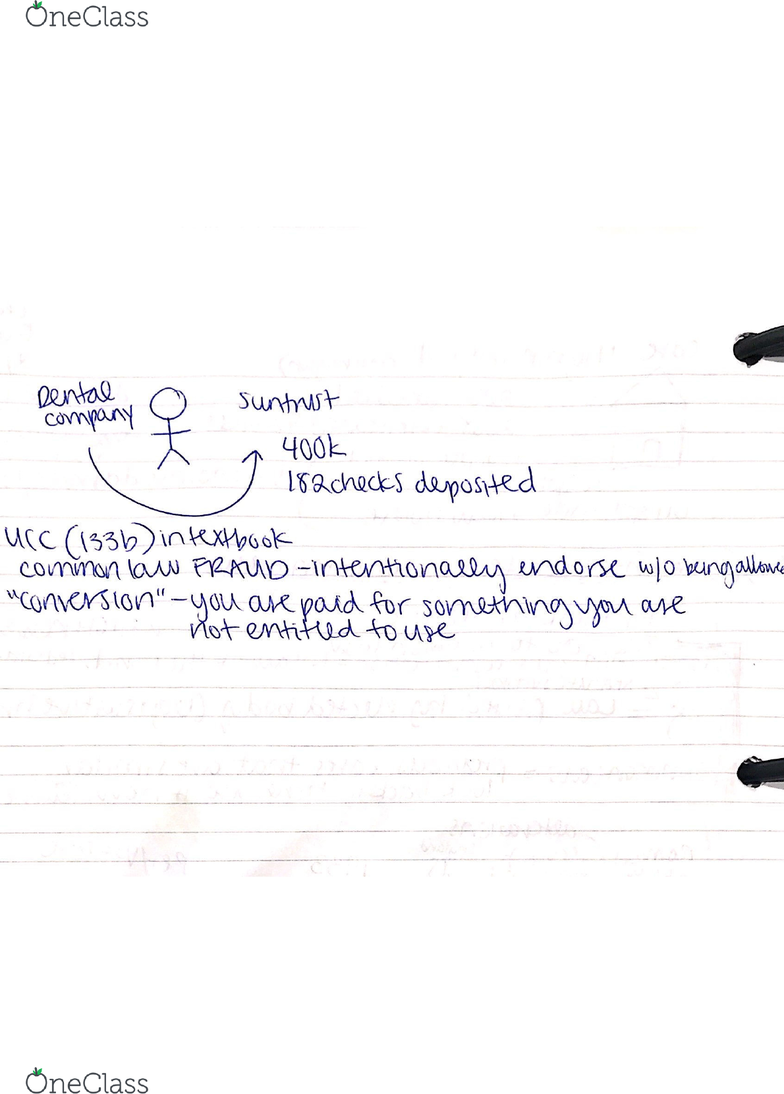 OneClass
Dental
company
suntrust
400k
182 checks deposited
UCC (1336) in textbook
common law FRAUD - intentionally endorse w/o being allowe
"conversion" - you are paid for something you are
not entitled to use
OneClass